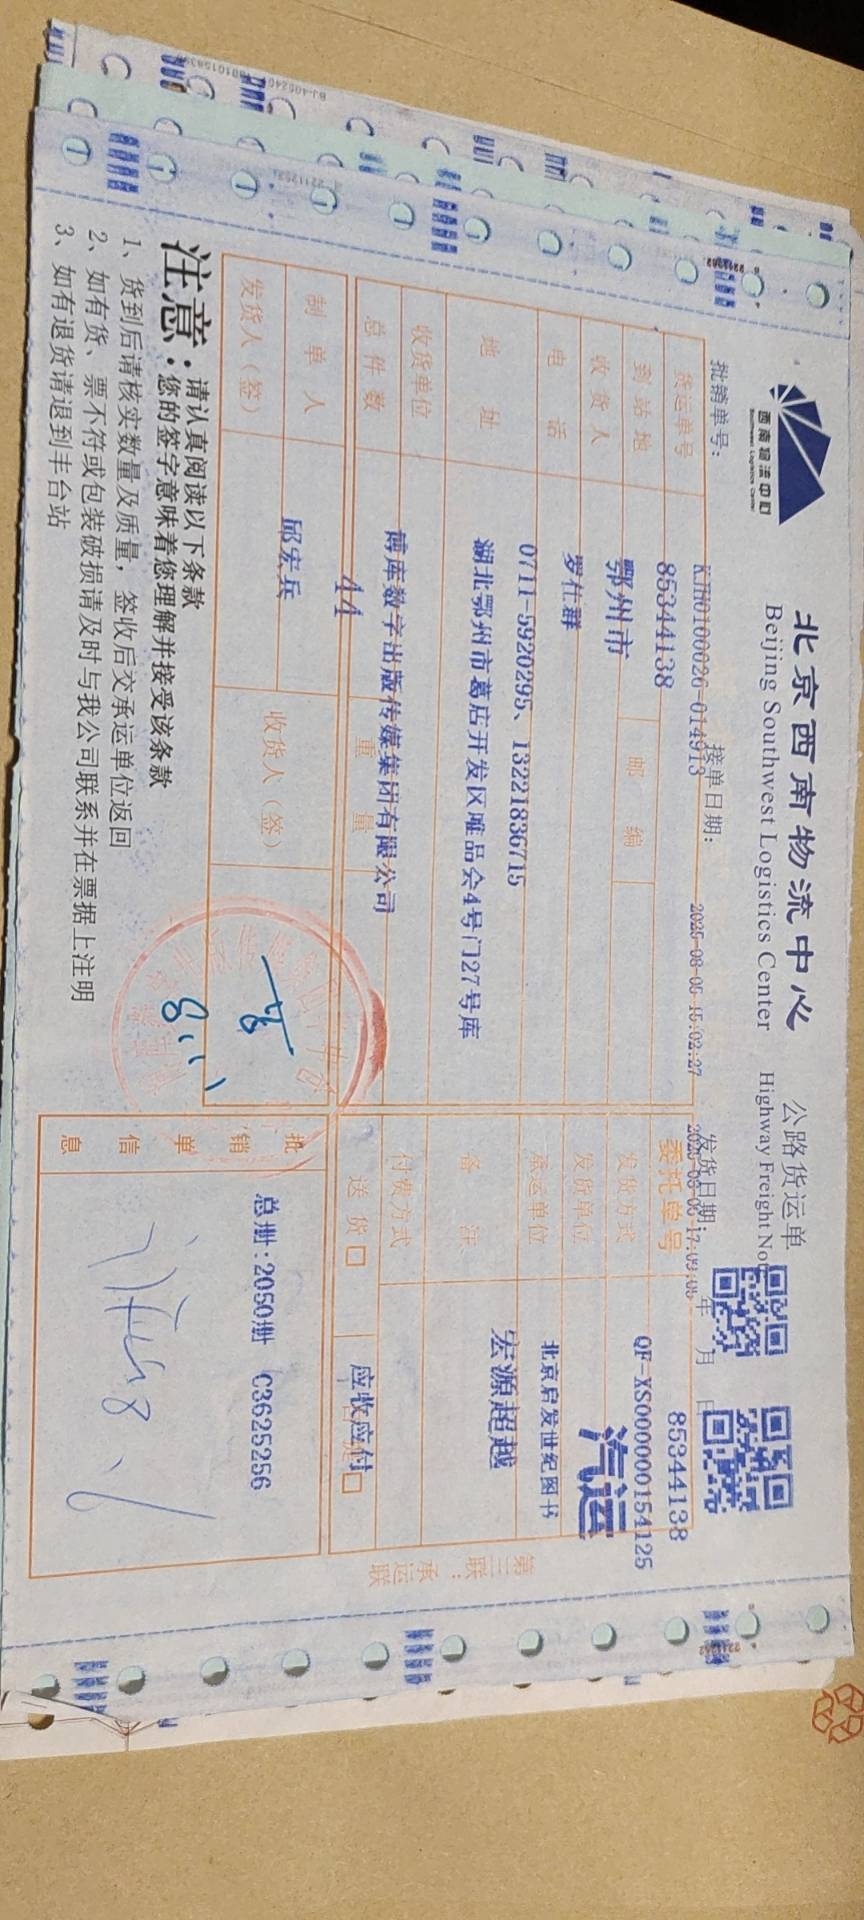 西南物流中心
Southwest Logistics Center
北京西南物流中心 公路货运单
Beijing Southwest Logistics Center Highway Freight Note
批销单号: KJH0100026-014913 接单日期: 2025-08-05 15:02:27 发货日期: 年 月 日
货运单号 85344138 委托单号 85344138
QF-XS000000154125
到站地 鄂州市 邮编 发货方式 汽运
收货人 罗仕群 发货单位 北京启发世纪图书
电话 0711-5920295、13221836715 承运单位 宏源超越
地址 湖北鄂州市葛店开发区唯品会4号门27号库 备注
收货单位 博库数字出版传媒集团有限公司 付费方式
总件数 44 重量 送货□ 应收应付
制单人 邱宏兵 收货人(签)
发货人(签)
批销单信息 总册:2050册 C3625256
第三联:承运联
注意:请认真阅读以下条款
您的签字意味着您理解并接受该条款
1、货到后请核实数量及质量,签收后交承运单位返回
2、如有货、票不符或包装破损请及时与我公司联系并在票据上注明
3、如有退货请退到丰台站